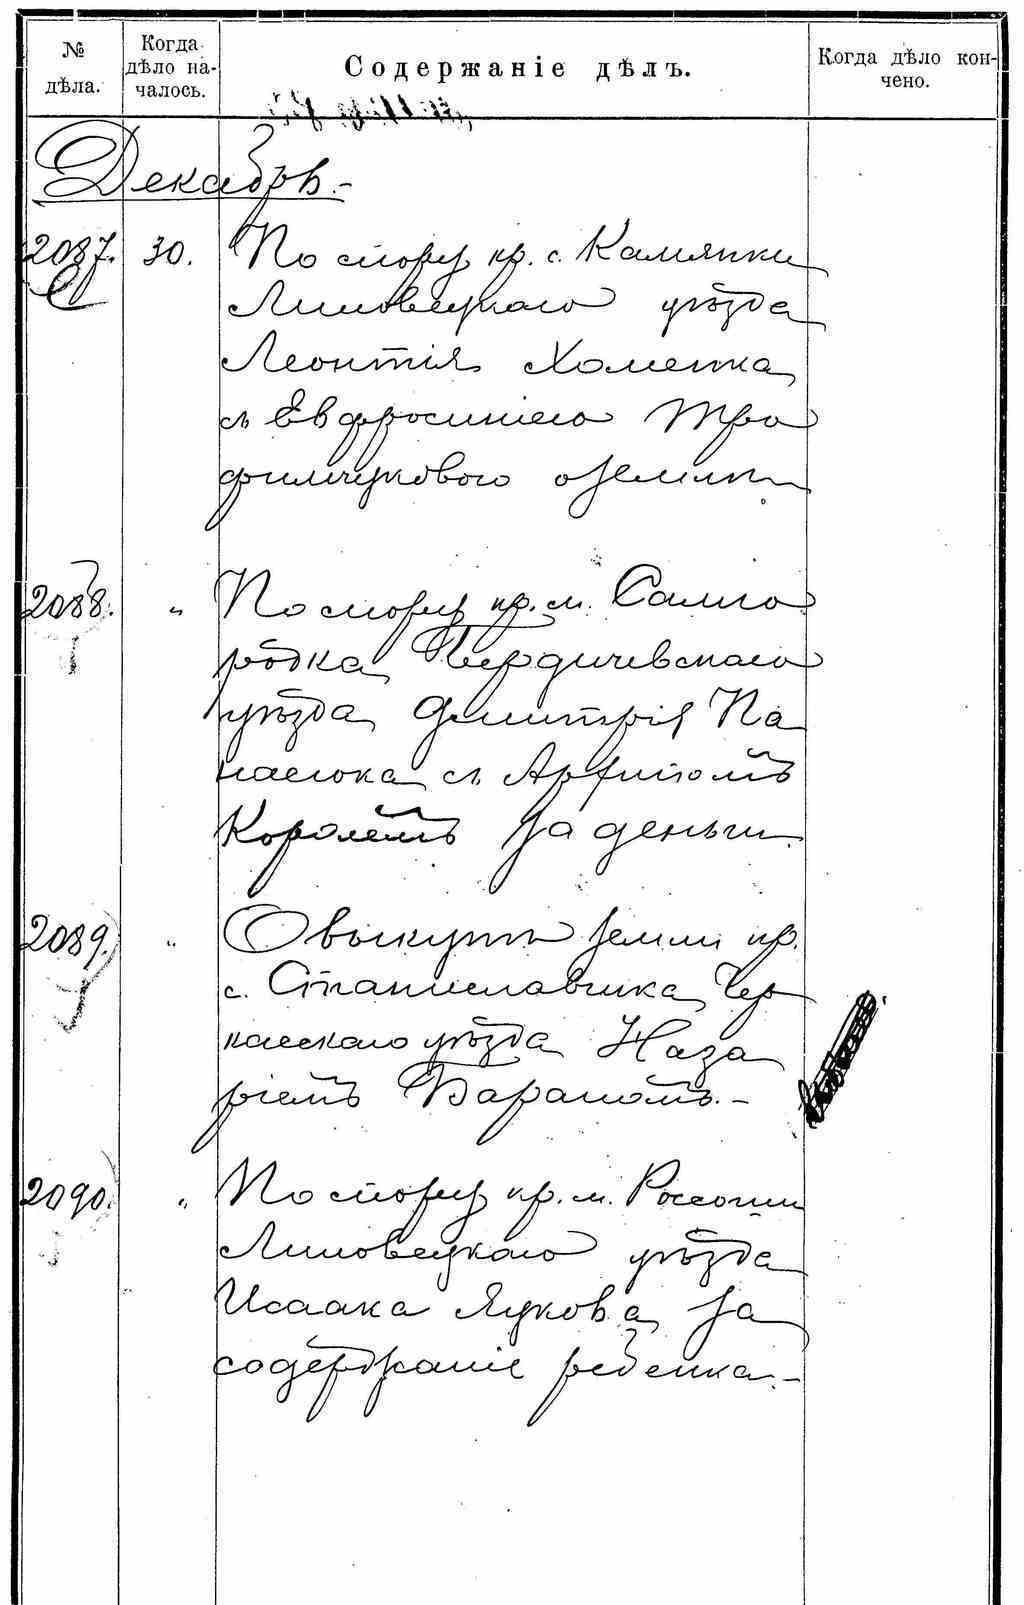 № дѣла.
Когда дѣло на-чалось.
Содержаніе дѣлъ.
Когда дѣло кон-чено.
Декабрь.-
2087. 30. По спору кр. с. Камянки
Липовецкаго уѣзда
Леонтія Хоменка
съ Евфросиніею Тро
фимчуковою о землѣ.
2088. " По спору кр. м. Самго
родка Бердичевскаго
уѣзда Димитрія Па
насюка съ Арфипомъ
Королемъ за деньги.
2089. " О выкупѣ земли кр.
с. Станиславчика Чер
касскаго уѣзда Наза
ріемъ Бараномъ.-
2090. " По спору кр. м. Россоши
Липовецкаго уѣзда
Исаака Яцкова за
содержаніе ребенка.-